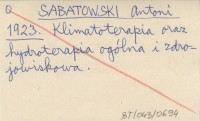 Q SABATOWSKI Antoni
1923. Klimatoterapia oraz
hydroterapia ogólna i zdro-
jowiskowa.
BT/043/0694